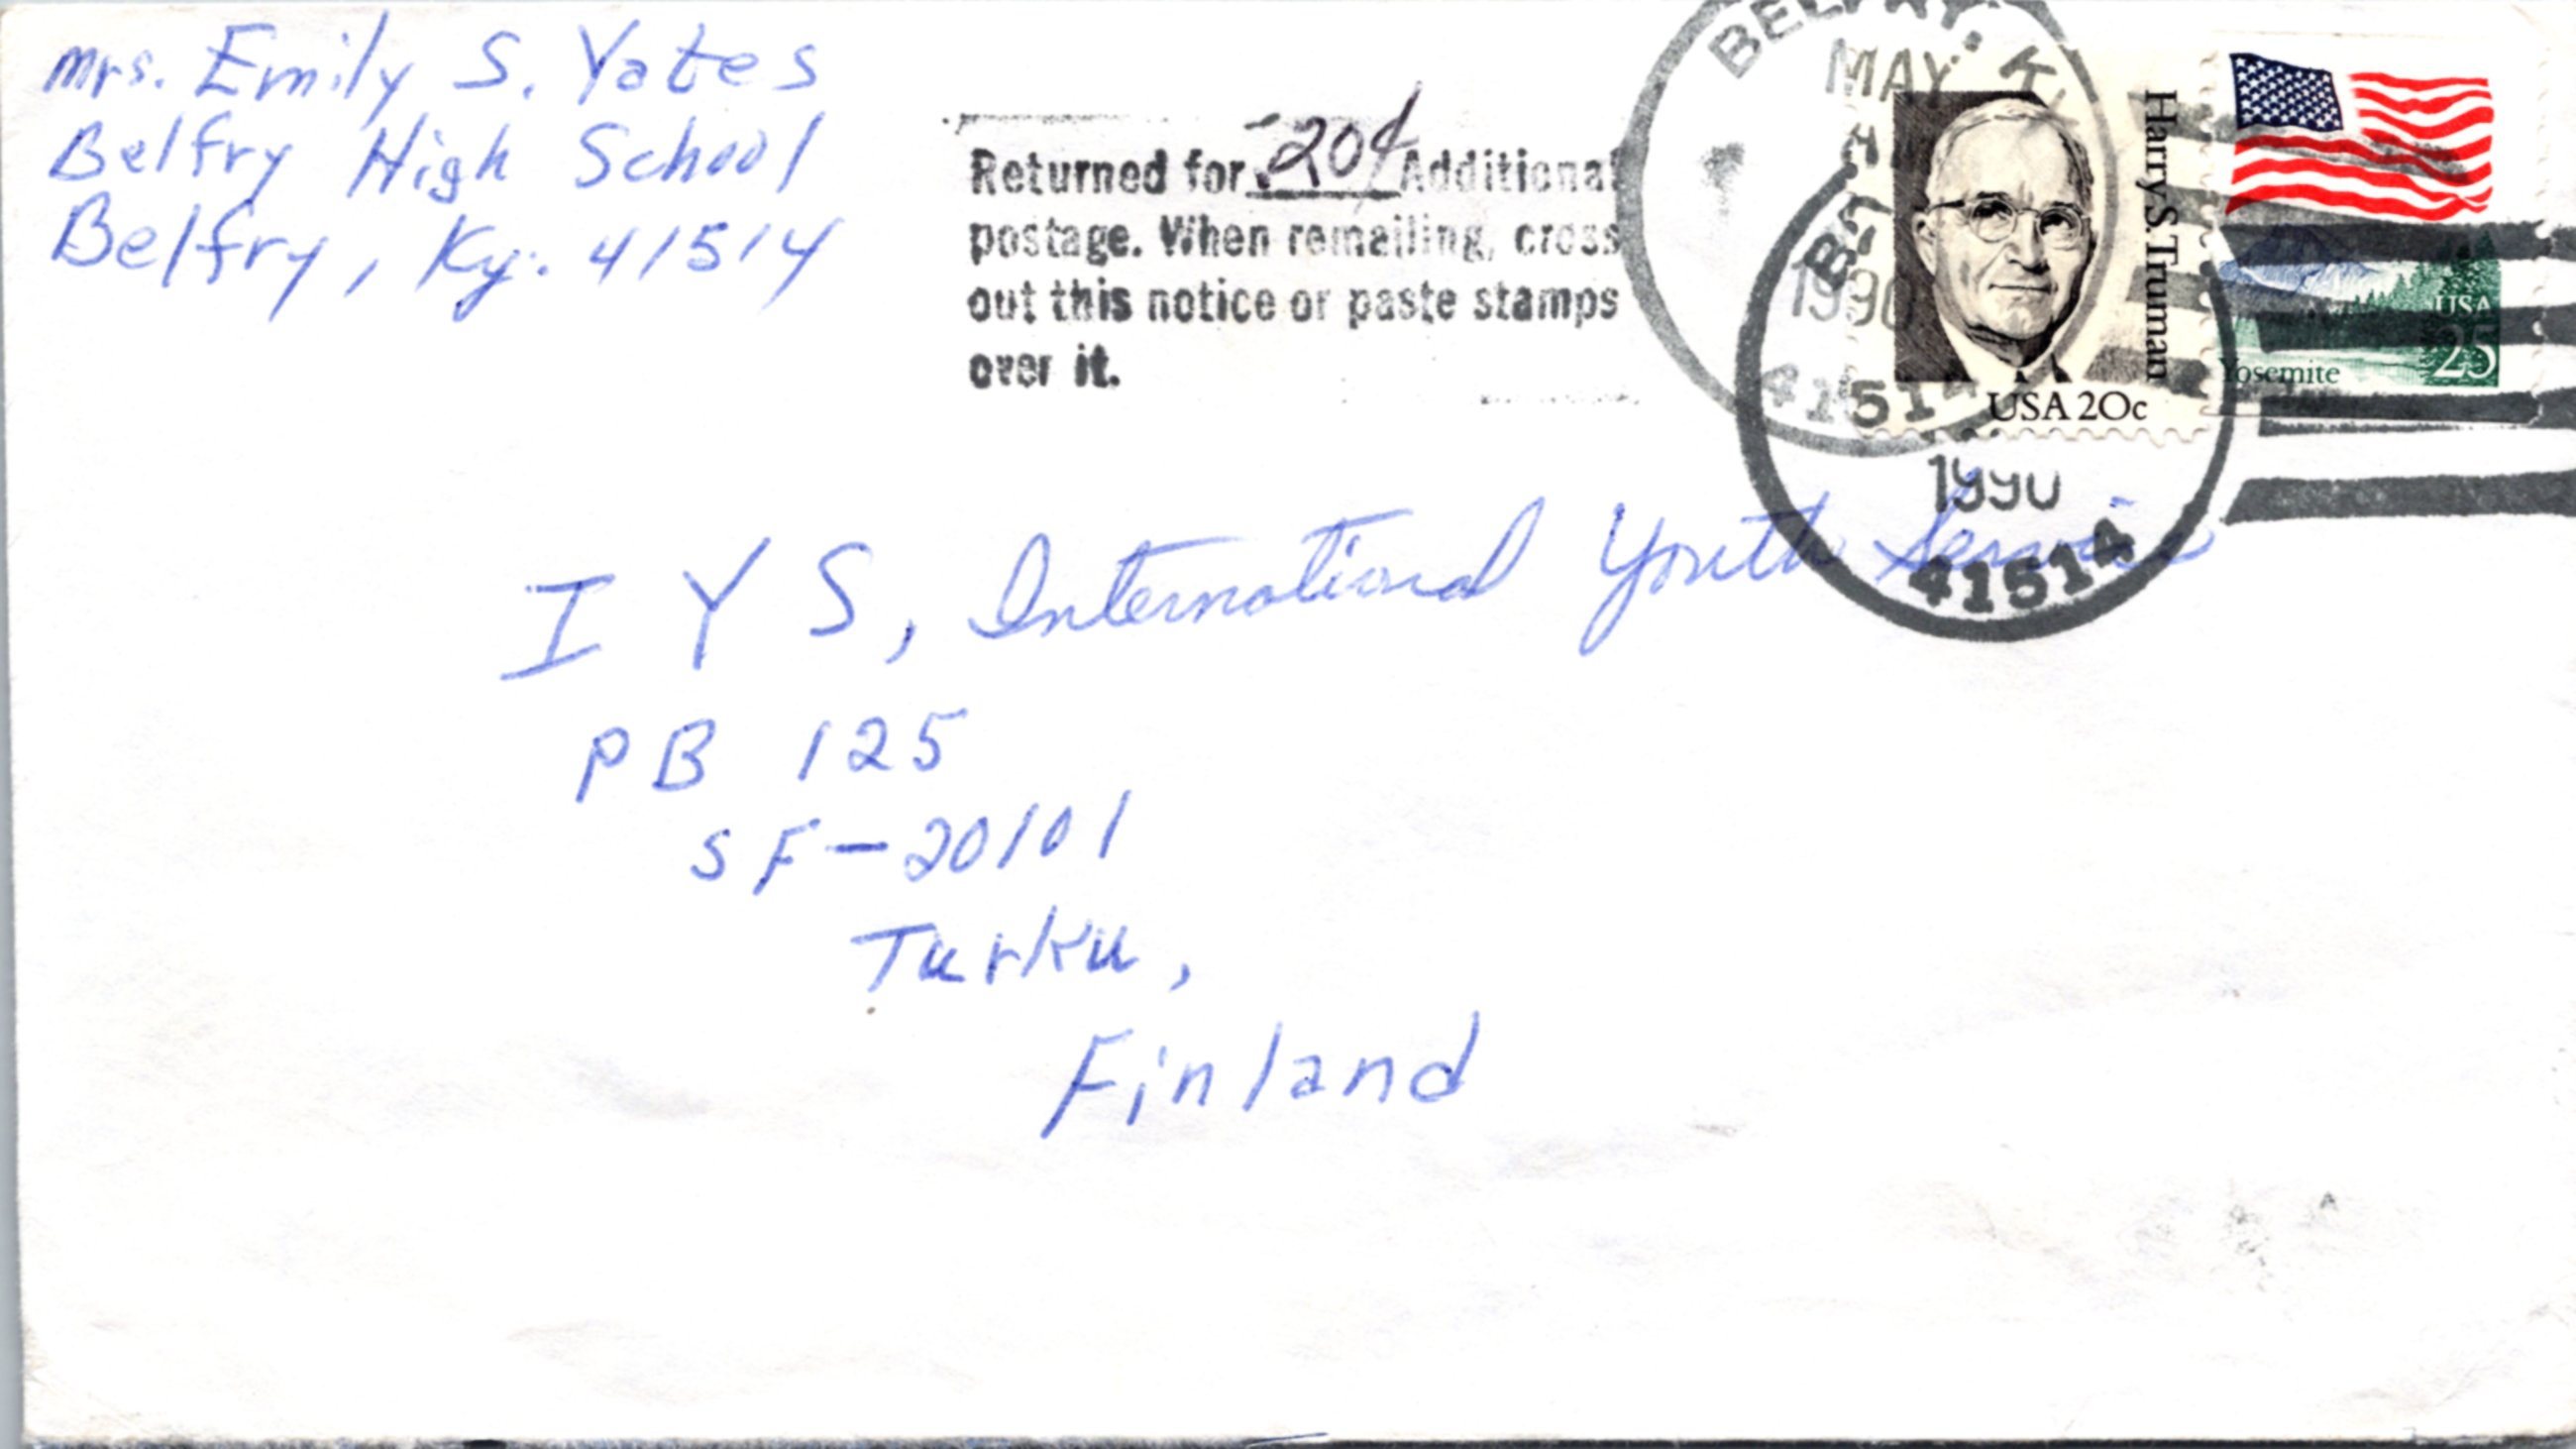 Mrs. Emily S. Yates
Belfry High School
Belfry, Ky. 41514
Returned for 20¢ Additional
postage. When remailing, cross
out this notice or paste stamps
over it.
BELFRY, K
MAY
1990
41514
Harry S. Truman
USA 20c
USA
25
Yosemite
1990
41514
I Y S, International Youth Service
PB 125
SF-20101
Turku,
Finland